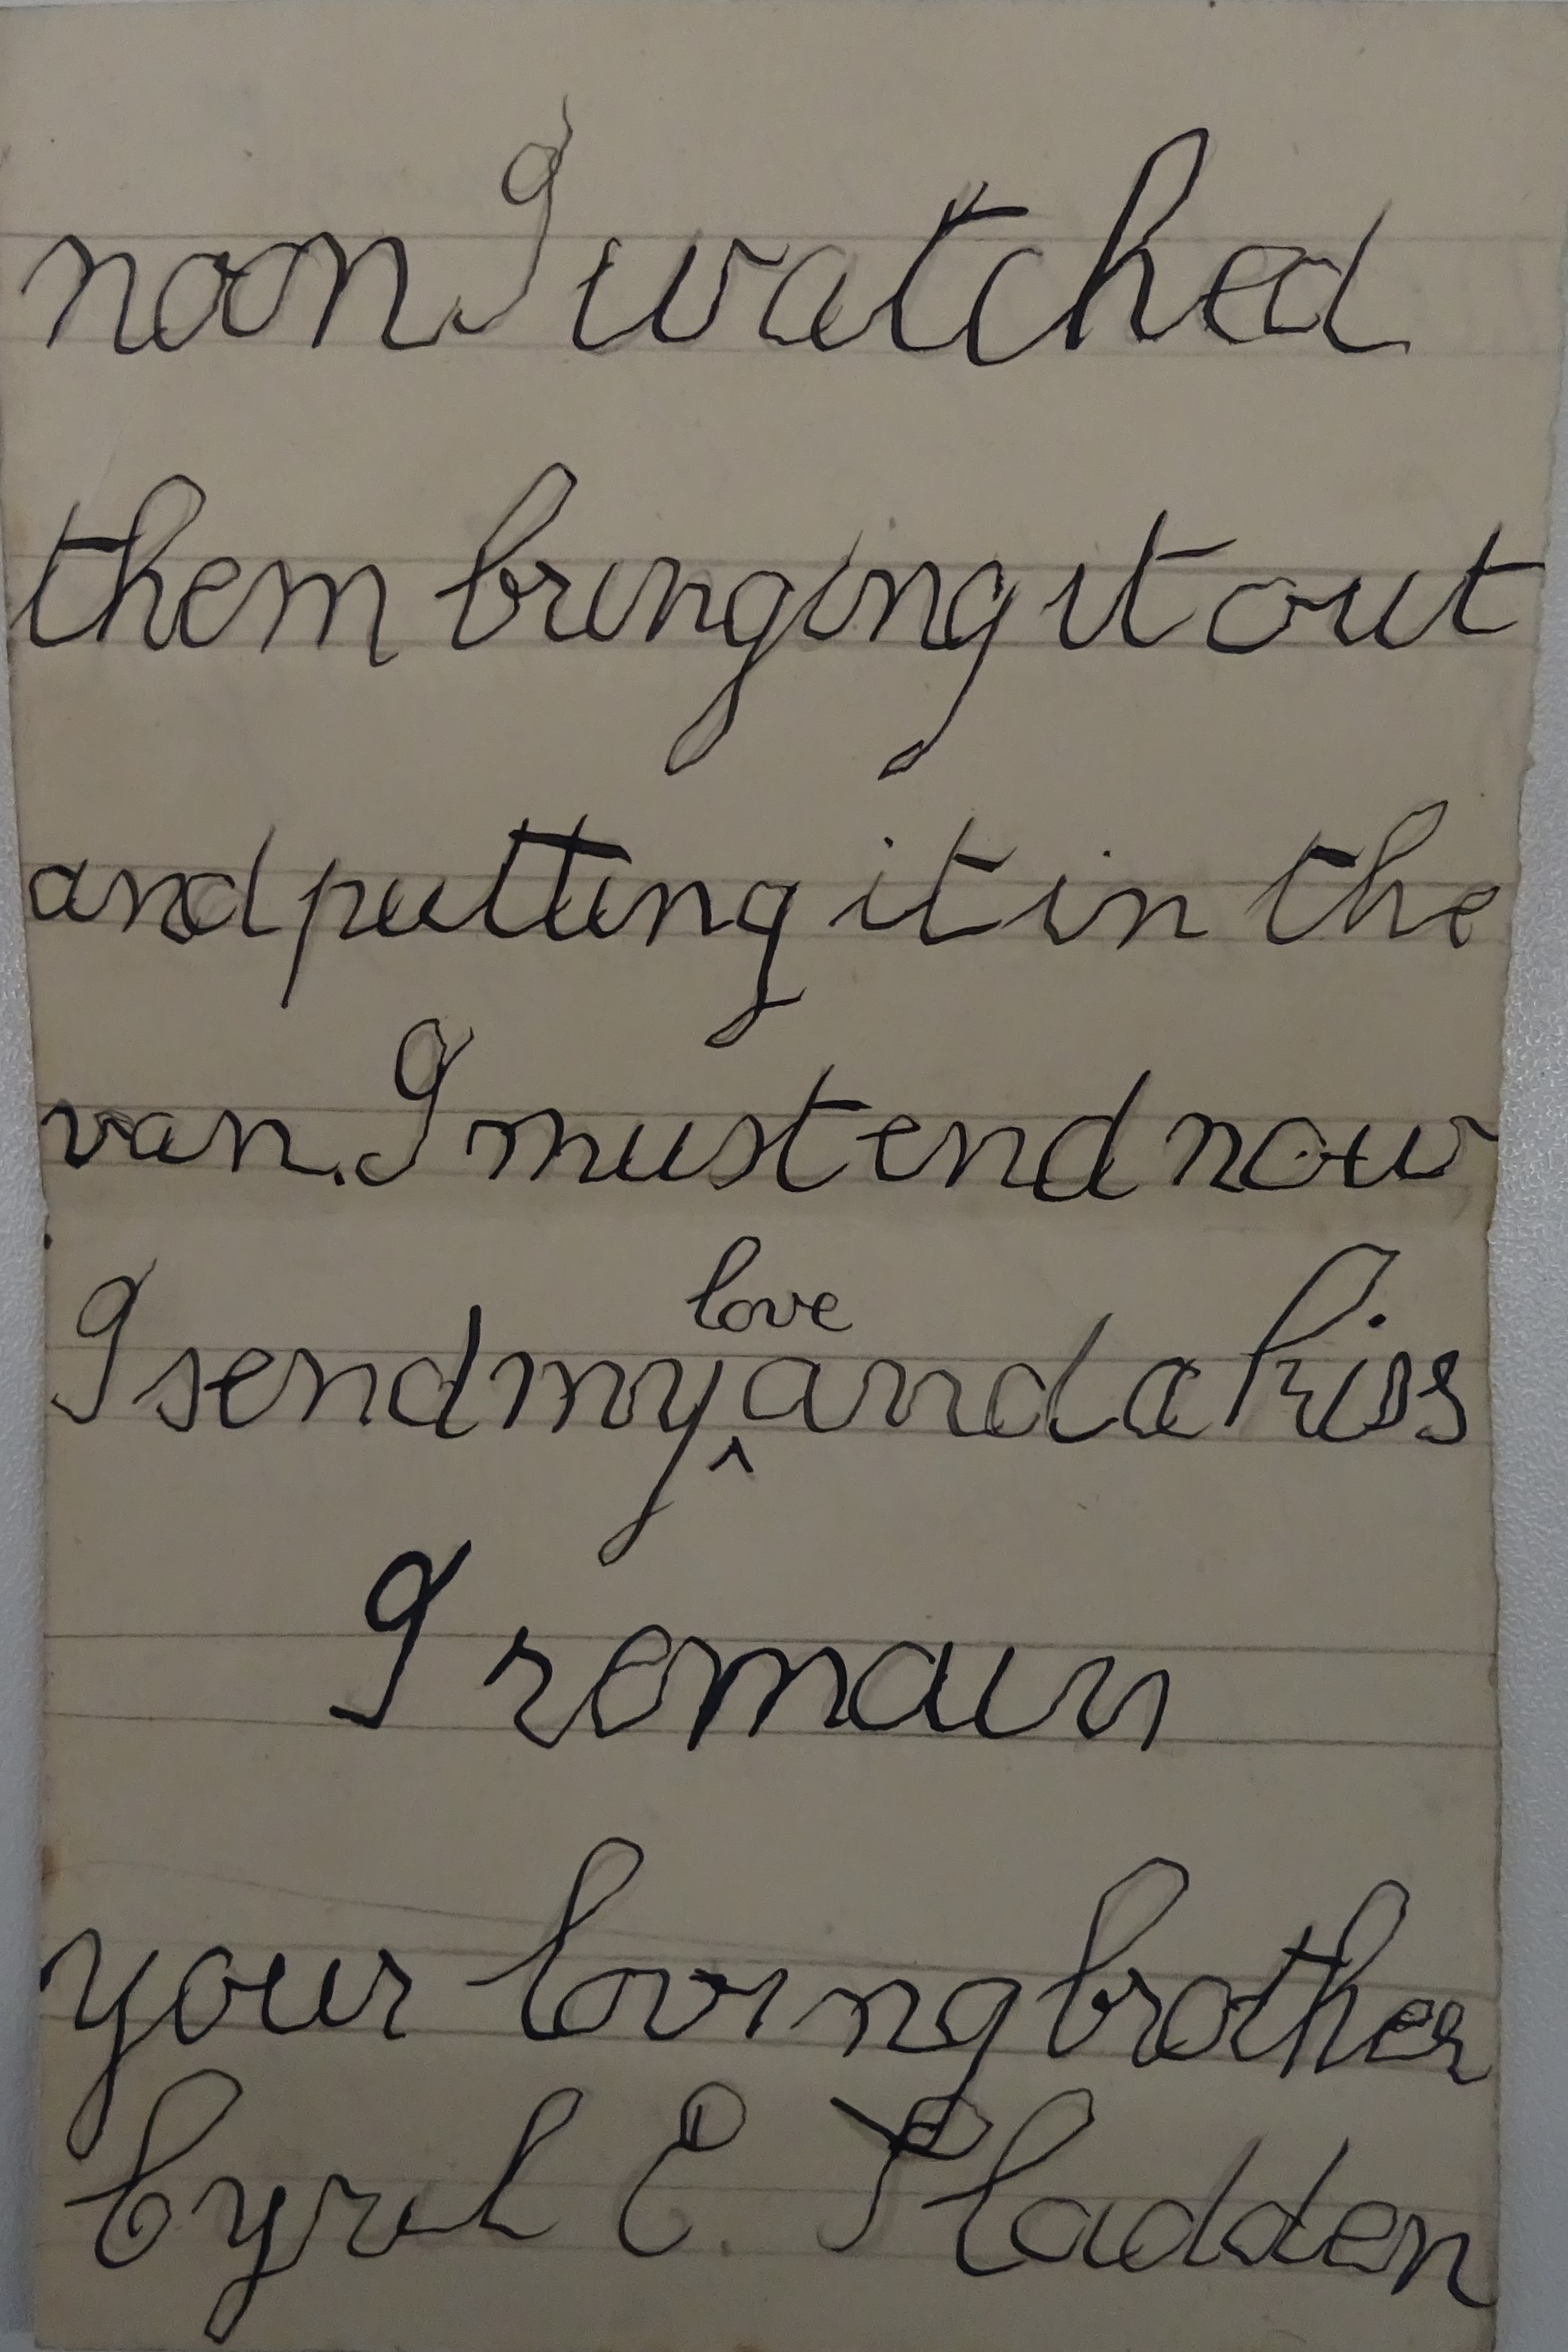 noon I watched
them bringing it out
and putting it in the
van. I must end now
I send my ^love and a kiss
I remain
your loving brother
Cyril E. Sladden